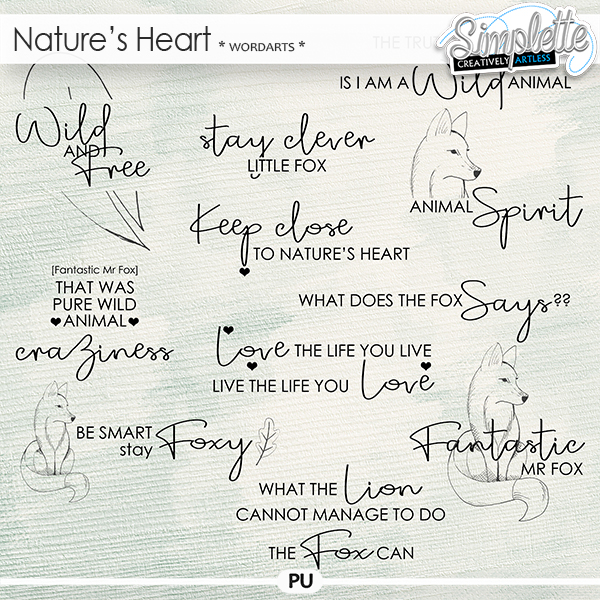 Nature's Heart * WORDARTS *
THE TRU
Simplette
CREATIVELY ARTLESS
IS I AM A Wild ANIMAL
Wild
AND
Free
stay clever
LITTLE FOX
ANIMAL Spirit
Keep close
TO NATURE'S HEART
[Fantastic Mr Fox]
THAT WAS
PURE WILD
❤ANIMAL❤
craziness
WHAT DOES THE FOX Says??
Love THE LIFE YOU LIVE
LIVE THE LIFE YOU Love
BE SMART
stay Foxy
Fantastic
MR FOX
WHAT THE Lion
CANNOT MANAGE TO DO
THE Fox CAN
PU